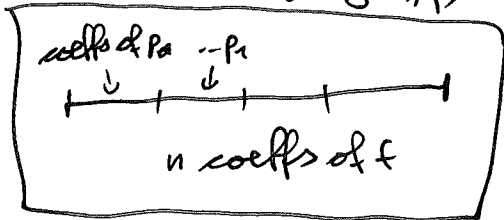 coeffs of p₀ ...p₁
n coeffs of f